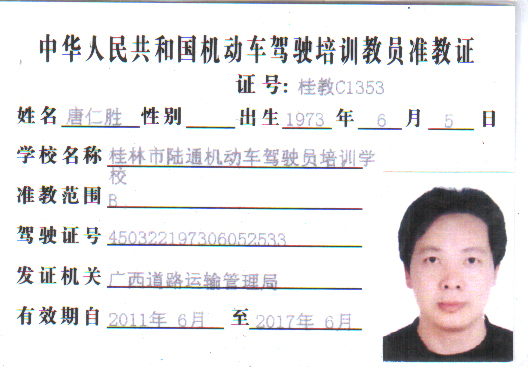 中华人民共和国机动车驾驶培训教员准教证
证号: 桂教C1353
姓名 唐仁胜 性别 出生 1973 年 6 月 5 日
学校名称 桂林市陆通机动车驾驶员培训学
校
准教范围 B
驾驶证号 450322197306052533
发证机关 广西道路运输管理局
有效期自 2011年 6月 至 2017年 6月